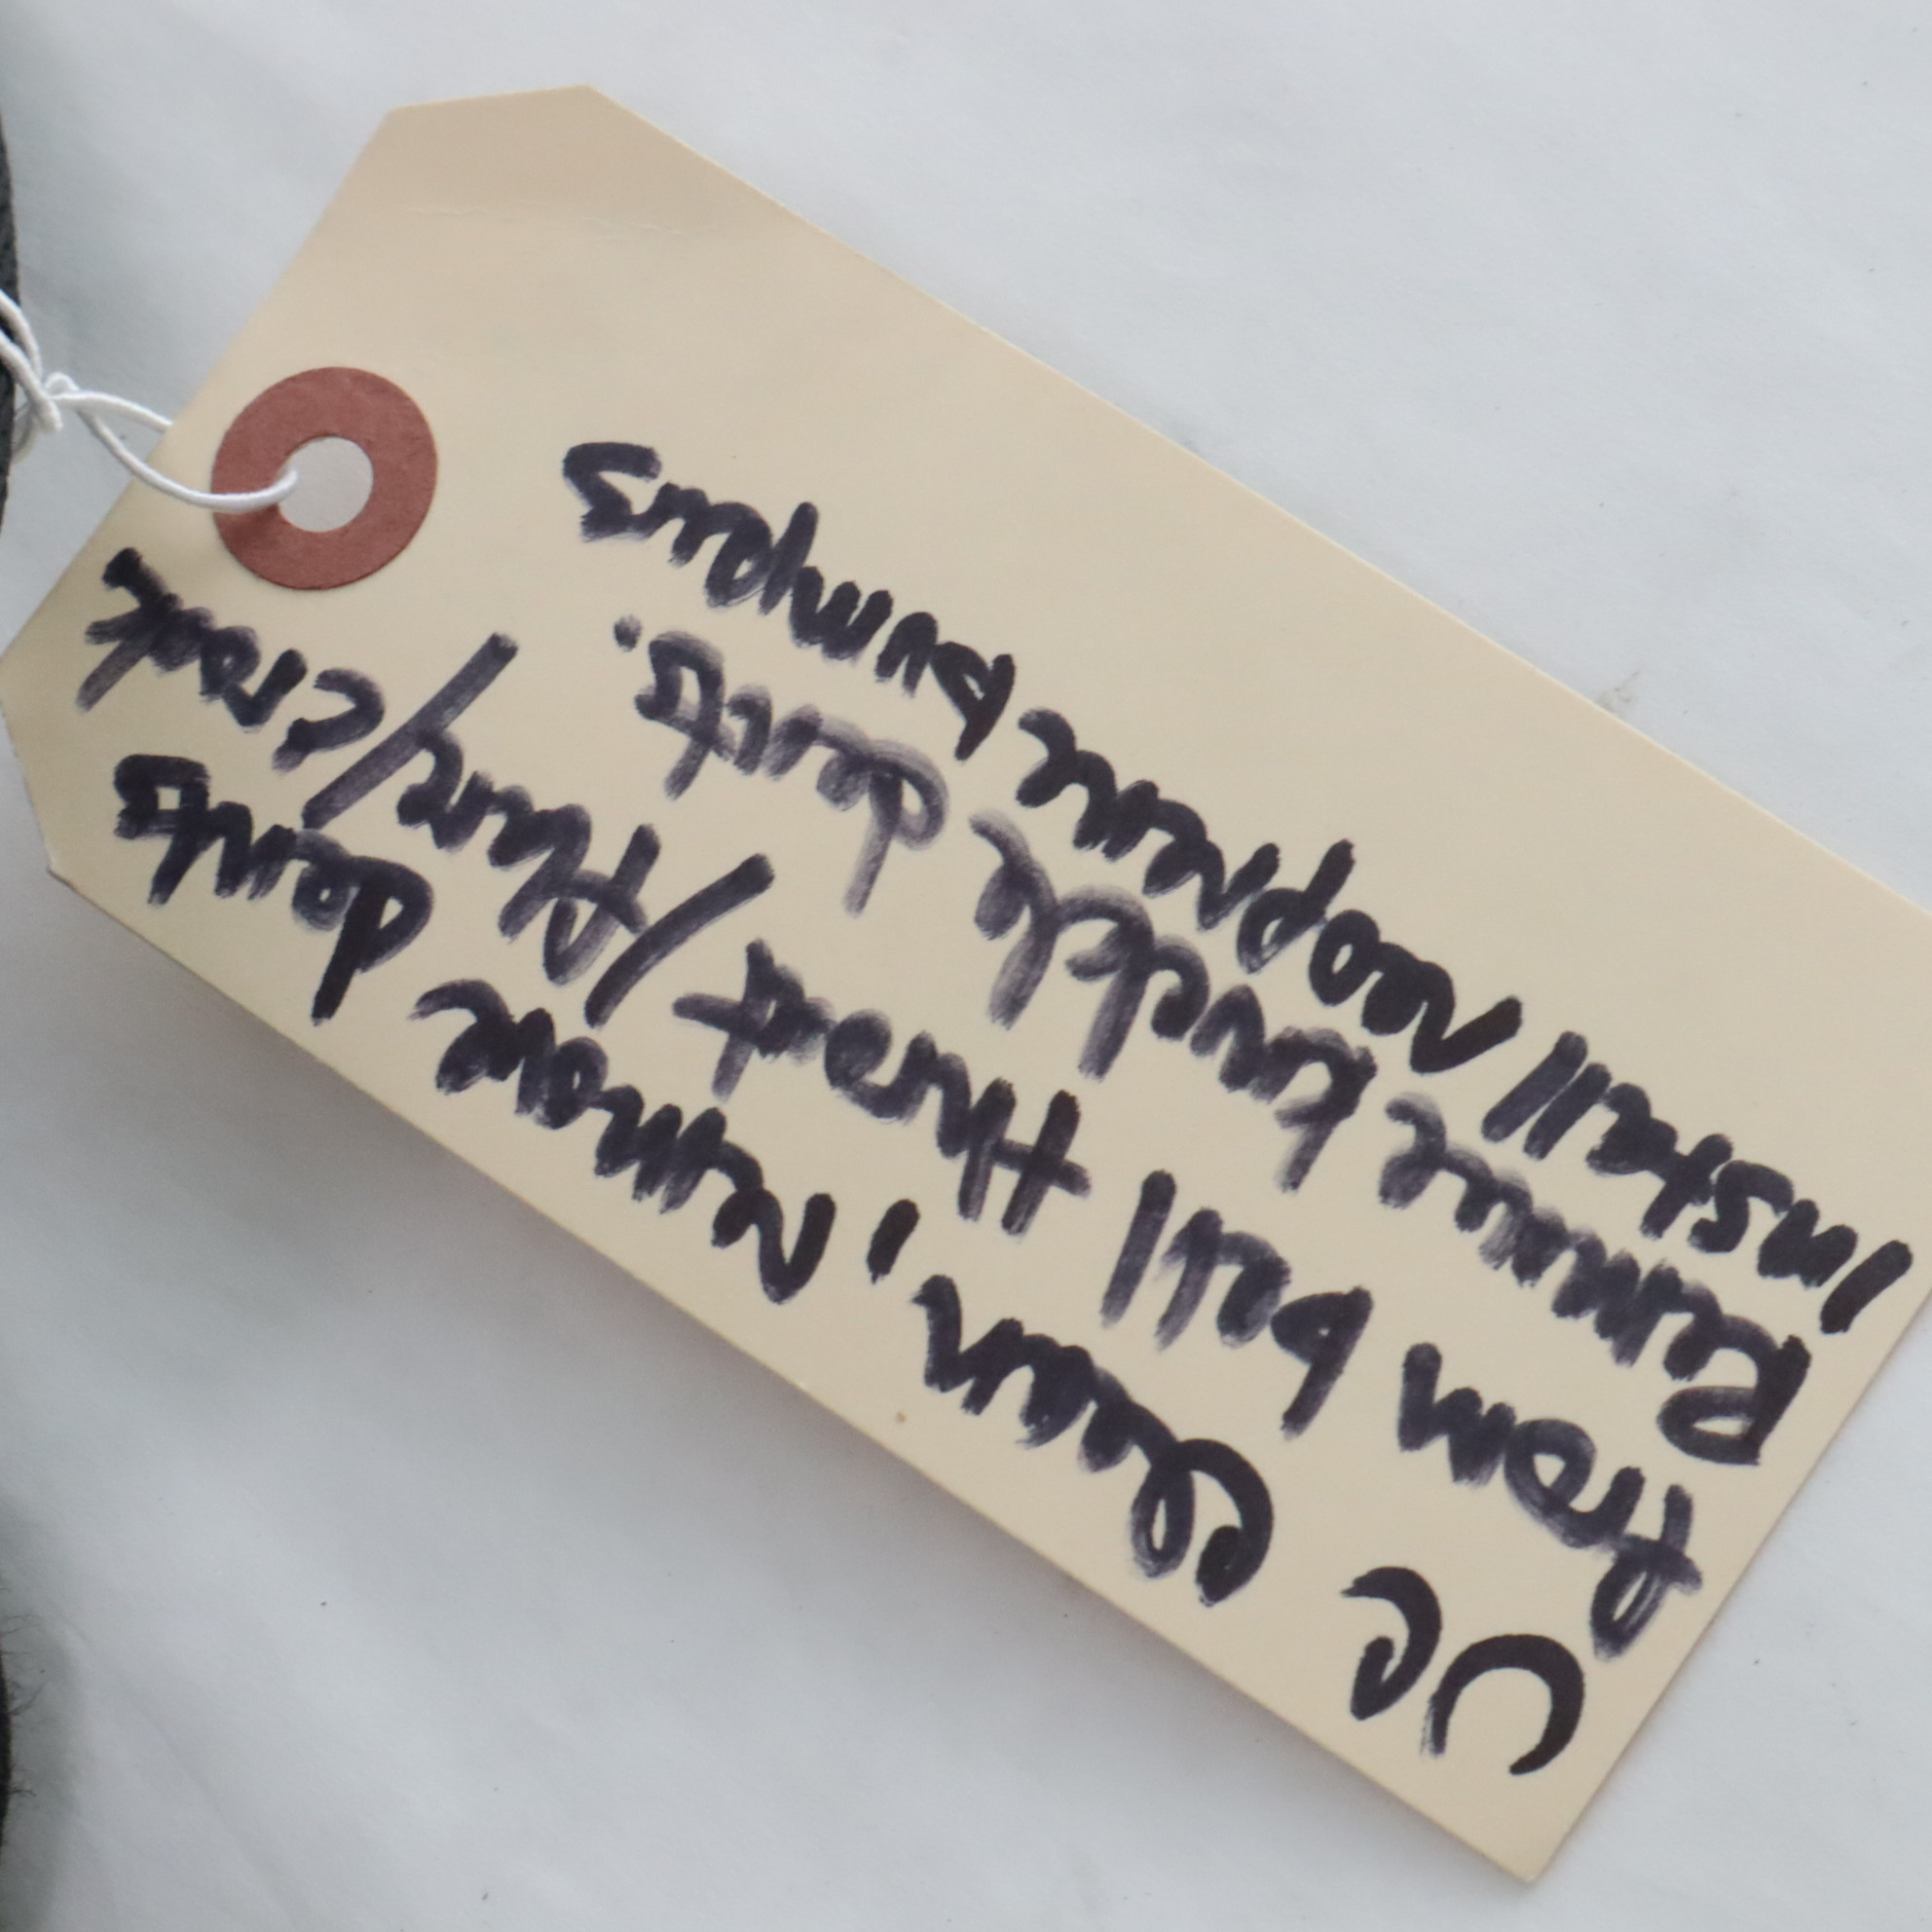 UC clean, remove dents
from bell throat/flare/crook
Remove knuckle dents.
Install neoprene bumpers